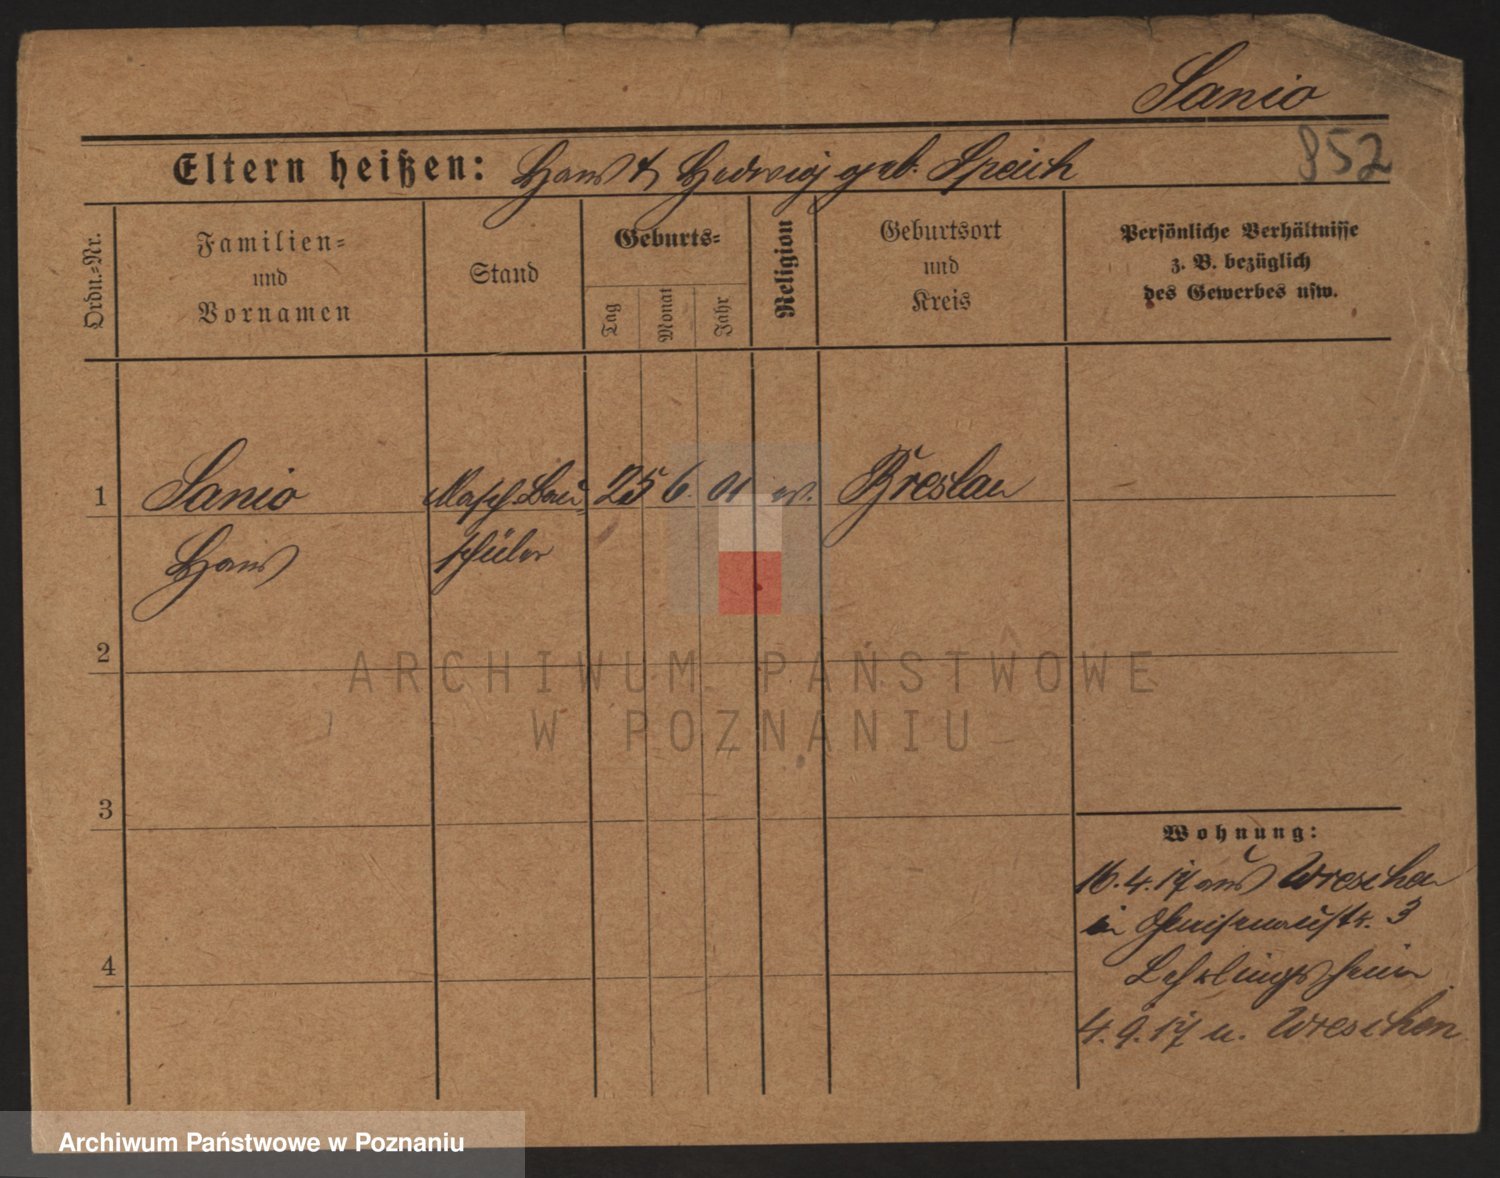 Sanio
852
Eltern heißen: Hans & Hedwig geb. Speich
Ordn.=Nr.
Familien=
und
Vornamen
Stand
Geburts=
Tag
Monat
Jahr
Religion
Geburtsort
und
Kreis
Persönliche Verhältnisse
z. B. bezüglich
des Gewerbes usw.
1 Sanio Masch.Bau= 25 6. 01 ev. Breslau
Hans schüler
2
3
4
Wohnung:
16.4.17 aus Wreschen
in Gneisenaustr. 3
Lehrlingsheim
4.9.17 n. Wreschen
ARCHIWUM PAŃSTWOWE
W POZNANIU
Archiwum Państwowe w Poznaniu